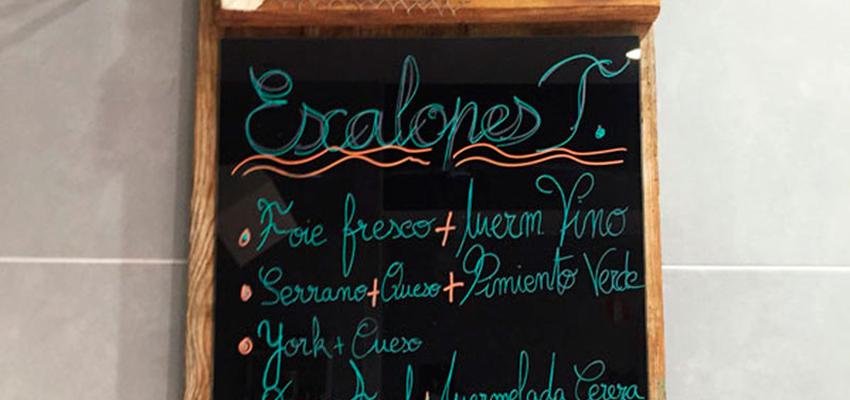 Escalopes T.
Foie fresco + Merm. Vino
Serrano + Queso + Pimiento Verde
York + Queso
+ Mermelada Cereza